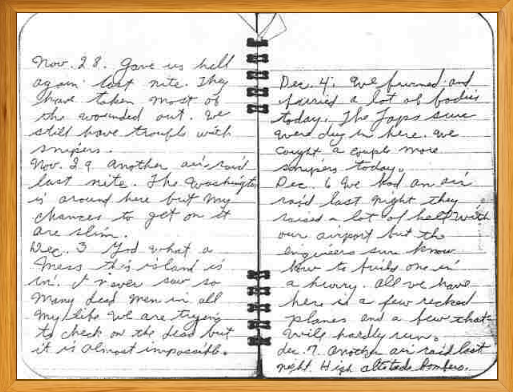 Nov. 28. Gave us hell
again last nite. They
have taken most of
the wounded out. We
still have trouble with
snipers.
Nov. 29 another air raid
last nite. The Washington
is around here but my
chances to get on it
are slim.
Dec. 3 God what a
mess this island is
in. I never saw so
many dead men in all
my life we are trying
to check on the dead but
it is almost impossible.
Dec. 4, We burned and
buried a lot of bodies
today. The Japs sure
were dug in here. We
caught a couple more
snipers today.
Dec. 6 We had an air
raid last night they
raised a lot of hell with
our airport but the
engineers sure know
how to build one in
a hurry. all we have
here is a few recked
planes and a few that
will hardly run.
Dec. 7 another air raid last
night. High altitude bombers.